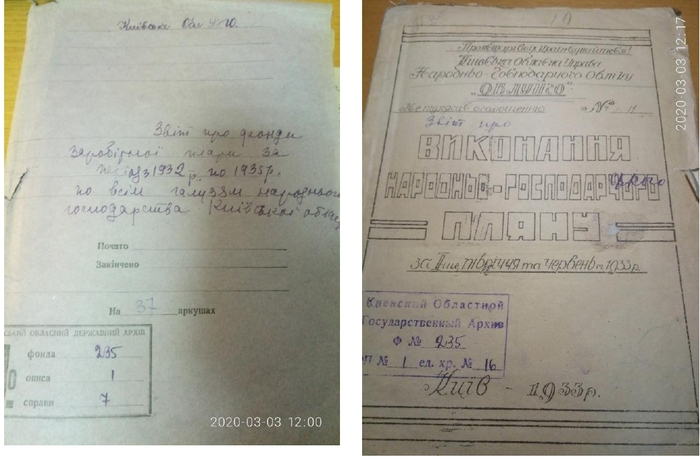 Київське Обл УНГО.
Звіт про фонди
заробітної плати за
період з 1932 р. по 1935р.
по всім галузям народнього
господарства Київської області
Почато
Закінчено
На 37 аркушах
ОБЛАСНИЙ ДЕРЖАВНИЙ АРХІВ
фонда 235
описа 1
справи 7
2020-03-03 12:00
Пролетарі всіх країн єднайтеся!
Київська Обласна Управа
Народньо-Господарчого Обліку
"ОБЛУНГО"
Не підлягає оголошенню №
Звіт про
ВИКОНАННЯ
НАРОДНЬО-ГОСПОДАРЧОГО
ПЛЯНУ
за І-ше півріччя та червень 1933 р.
Киевский Областной
Государственный Архив
Ф № 235
ОП № 1 ед. хр. № 16
Київ - 1933 р.
2020-03-03 12:17